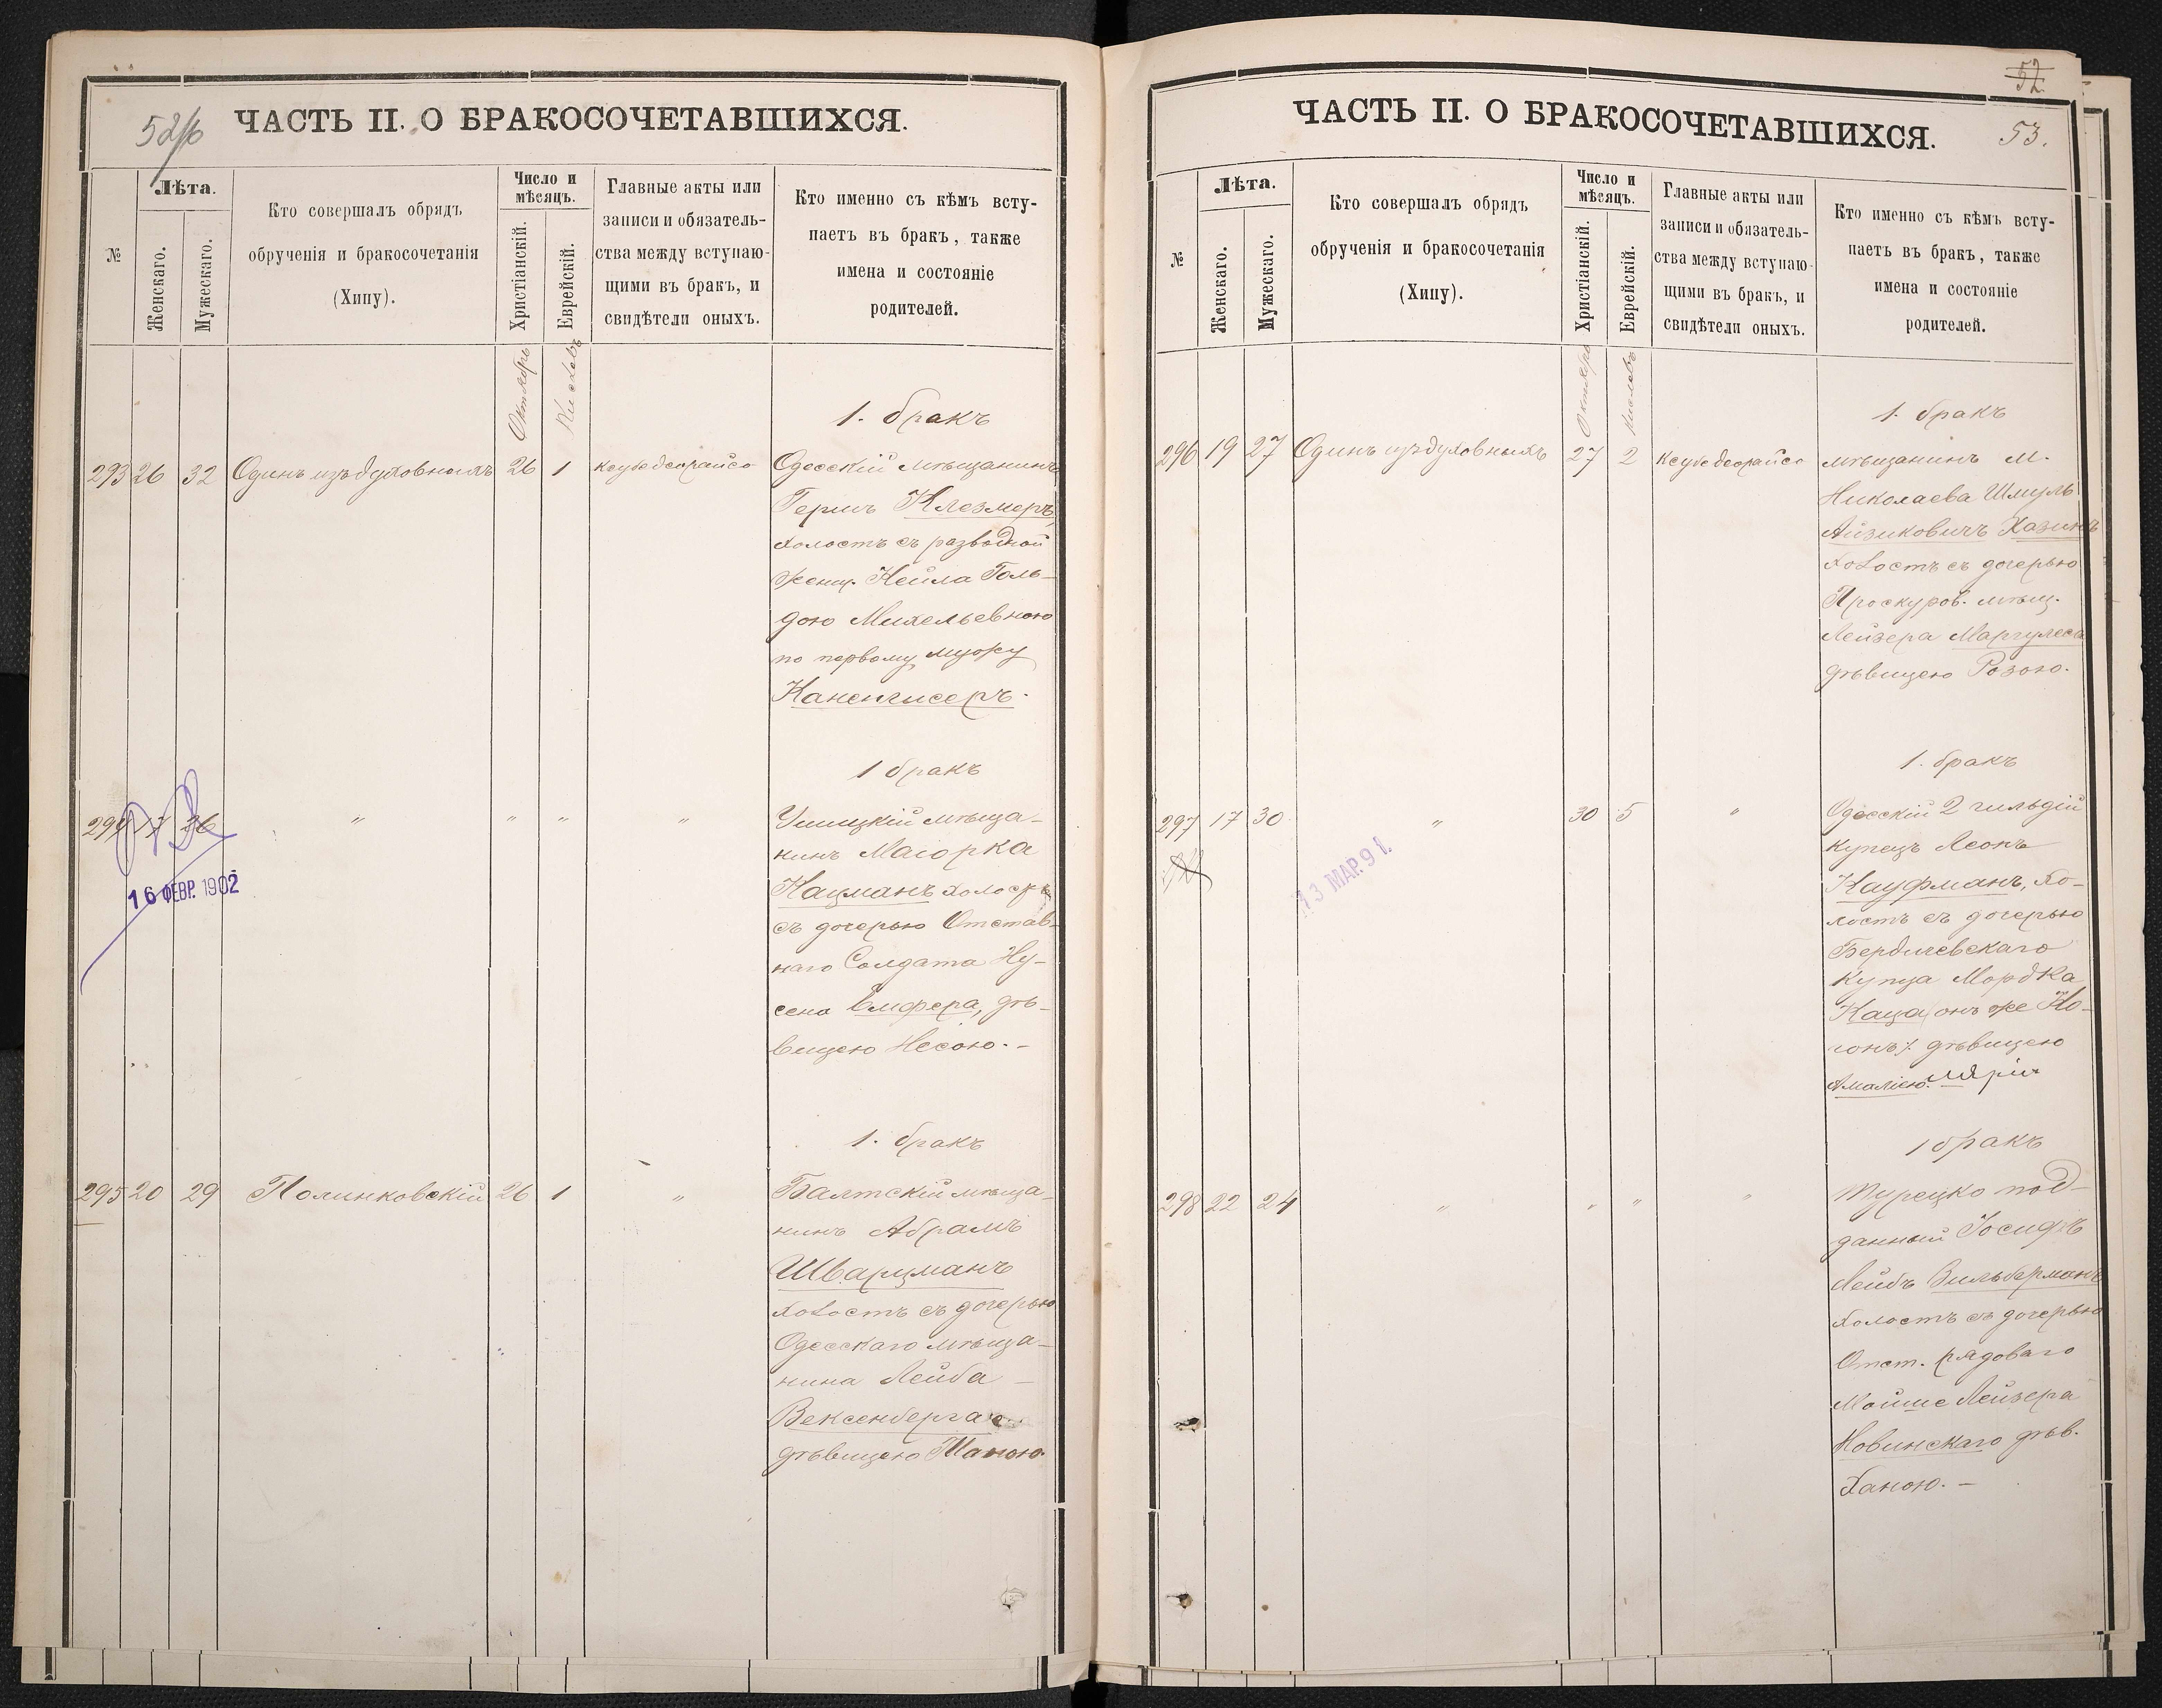 52об
ЧАСТЬ II. О БРАКОСОЧЕТАВШИХСЯ.
№
Лѣта.
Женскаго.
Мужескаго.
Кто совершалъ обрядъ
обрученія и бракосочетанія
(Хипу).
Число и
мѣсяцъ.
Христіанскій.
Еврейскій.
Главные акты или
записи и обязатель-
ства между вступаю-
щими въ бракъ, и
свидѣтели оныхъ.
Кто именно съ кѣмъ всту-
паетъ въ бракъ, также
имена и состояніе
родителей.
Октябрь
Кислевъ
1. бракъ
293 26 32 Одинъ изъ духовныхъ 26 1 Ксубе деорайсо Одесскій мѣщанинъ
Гершъ Клезмеръ,
холостъ съ разводной
женщ. Нейла Голь-
дою Михельевною
по первому мужу
Каненгисеръ.
1 бракъ
294 17 36 " " " " Ушицкій мѣща-
нинъ Маіорка
Кацманъ холостъ
съ дочерью Отстав-
наго Солдата Ну-
сена дѣ-
вицею Несою. -
16 ФЕВР. 1902
1. бракъ
295 20 29 Полинковскій 26 1 " Балтскій мѣща-
нинъ Абрамъ
Шварцманъ
холостъ съ дочерью
Одесскаго мѣща-
нина Лейба
Вексенберга
дѣвицею
52.
53.
ЧАСТЬ II. О БРАКОСОЧЕТАВШИХСЯ.
№
Лѣта.
Женскаго.
Мужескаго.
Кто совершалъ обрядъ
обрученія и бракосочетанія
(Хипу).
Число и
мѣсяцъ.
Христіанскій.
Еврейскій.
Главные акты или
записи и обязатель-
ства между вступаю-
щими въ бракъ, и
свидѣтели оныхъ.
Кто именно съ кѣмъ всту-
паетъ въ бракъ, также
имена и состояніе
родителей.
Октябрь
Кислевъ
1. бракъ
296 19 27 Одинъ изъ духовныхъ 27 2 Ксубе деорайсо мѣщанинъ м.
Николаева Шмуль
Айзиковичъ Хазинъ
холостъ съ дочерью
Проскуров. мѣщ.
Лейзера Маргулеса
дѣвицею Розою.
1. бракъ
297 17 30 " 30 5 " Одесскій 2 гильдіи
купецъ Леонъ
Кауфманъ, хо-
лостъ съ дочерью
Бердичевскаго
купца Мордка
Каца онъ же Ко-
гонъ). дѣвицею
Амаліею.
13 МАР. 91.
1 бракъ
298 22 24 " " " " Турецко под-
данный Іосифъ
Лейбъ Зильберманъ
холостъ съ дочерью
Отст. рядоваго
Мойше Лейзера
Новинскаго дѣв.
Ханою. -